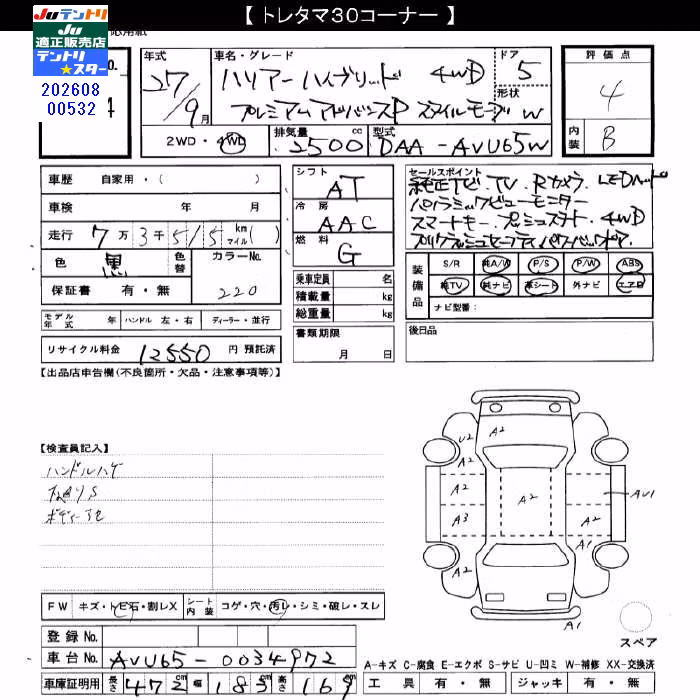 【 トレタマ３０コーナー 】
Juテントリ
Ju
適正販売店
テントリ
★スター
202608
00532
年式
車名・グレード
ドア
評価点
27/9月
ハリアーハイブリッド 4WD
5
4
形状
プレミアムアドバンスP スタイルモーヴ
W
2WD・4WD
排気量 2500 cc
型式 DAA-AVU65W
内装
B
車歴 自家用・( )
車検 年 月
走行 7万3千515 km マイル( )
色 黒 色替 カラーNo. 220
保証書 有・無
シフト AT
冷房 AAC
燃料 G
乗車定員 名
積載量 kg
総重量 kg
セールスポイント
純正ナビ.TV.Rカメラ.LEDヘッド
パノラミックビューモニター
スマートキー.プッシュスタート.4WD
プリクラッシュセーフティ パワーバックドア.
装備品
S/R 純A/W P/S P/W ABS
純TV 純ナビ 革シート 外ナビ エアB
ナビ型番:
モデル年式 年 ハンドル 左・右 ディーラー・並行
リサイクル料金 12550 円 預託済
書類期限
月 日
後日品
【出品店申告欄(不良箇所・欠品・注意事項等)】
【検査員記入】
ハンドルハゲ
U2 A2
A2
A2 A2 AU1
A3 A2
A1
A2
A1
スペア
FW キズ・トビ石・割レX
シート内装 コゲ・穴・汚レ・シミ・破レ・スレ
登録No.
車台No. AVU65-0034972
車庫証明用 長さ 472cm 幅 183cm 高さ 169cm
A-キズ C-腐食 E-エクボ S-サビ U-凹ミ W-補修 XX-交換済
工具 有・無 ジャッキ 有・無